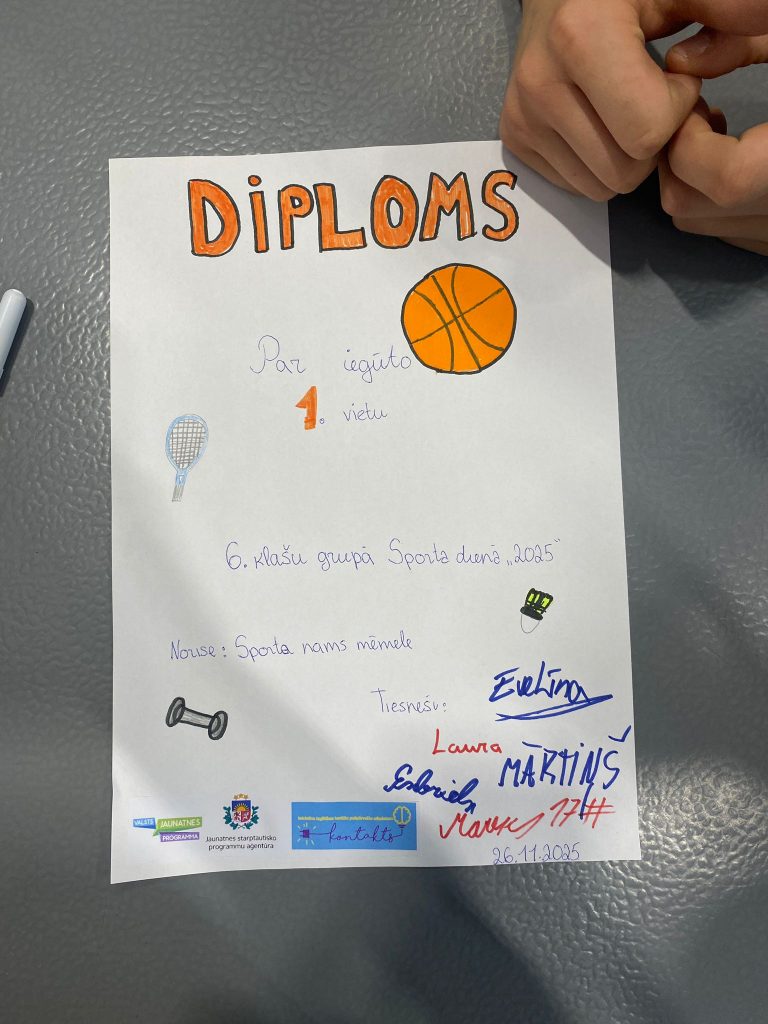 DiPLOMS
Par iegūto
1. vietu
6. klašu grupā Sporta dienā „2025"
Norise: Sporta nams mēmele
Tiesneši:
Evelīna
Laura
MĀRTIŅŠ
Gabriels
17#
26.11.2025
VALSTS JAUNATNES
PROGRAMMA
Jaunatnes starptautisko
programmu aģentūra
kontakts